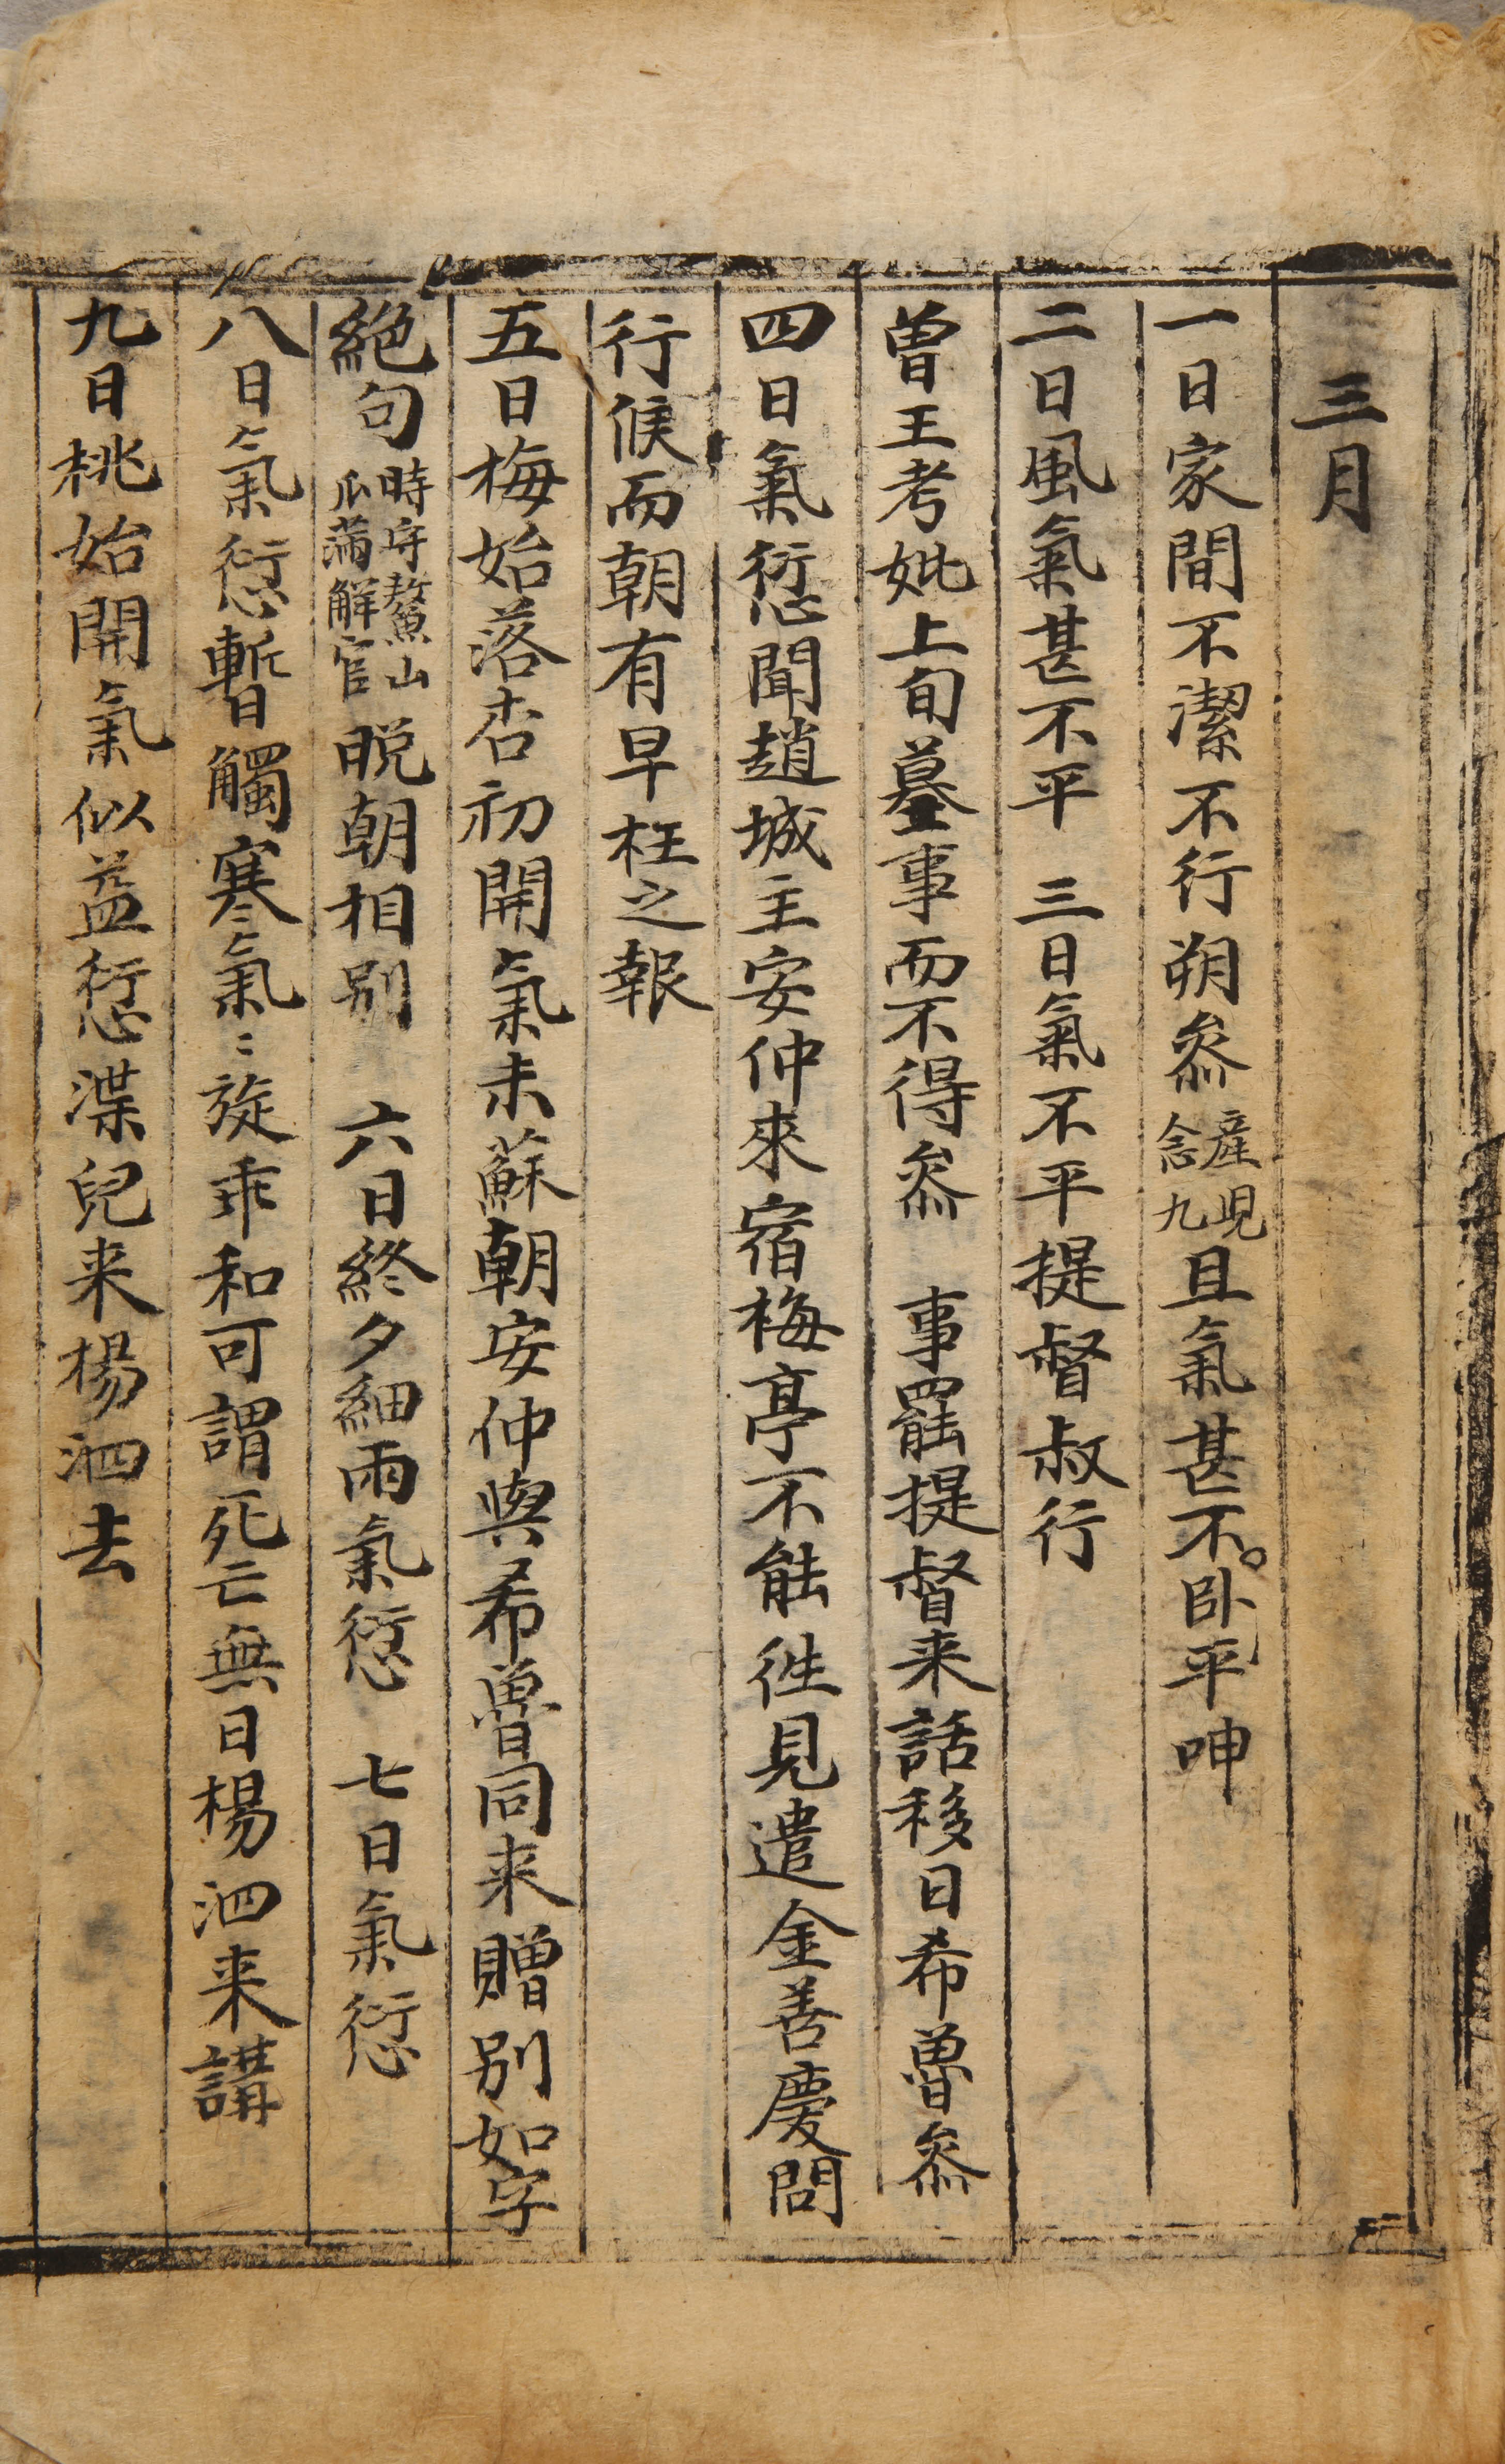 三月
一日家間不潔不行朔叅産児念九且氣甚不臥平呻
二日風氣甚不平 三日氣不平提督叔行
曾王考妣上旬墓事而不得叅 事罷提督来話移日希魯叅
四日氣愆聞趙城主安仲來宿梅亭不能徃見遣金善慶問
行候而朝有早枉之報
五日梅始落杏初開氣未蘇朝安仲與希魯同来贈别如字
絶句時守鰲山瓜滿解官晩朝相别 六日終夕細雨氣愆 七日氣愆
八日氣愆暫觸寒氣〻旋乖和可謂死亡無日楊泗来講
九日桃始開氣似益愆渫兒来楊泗去